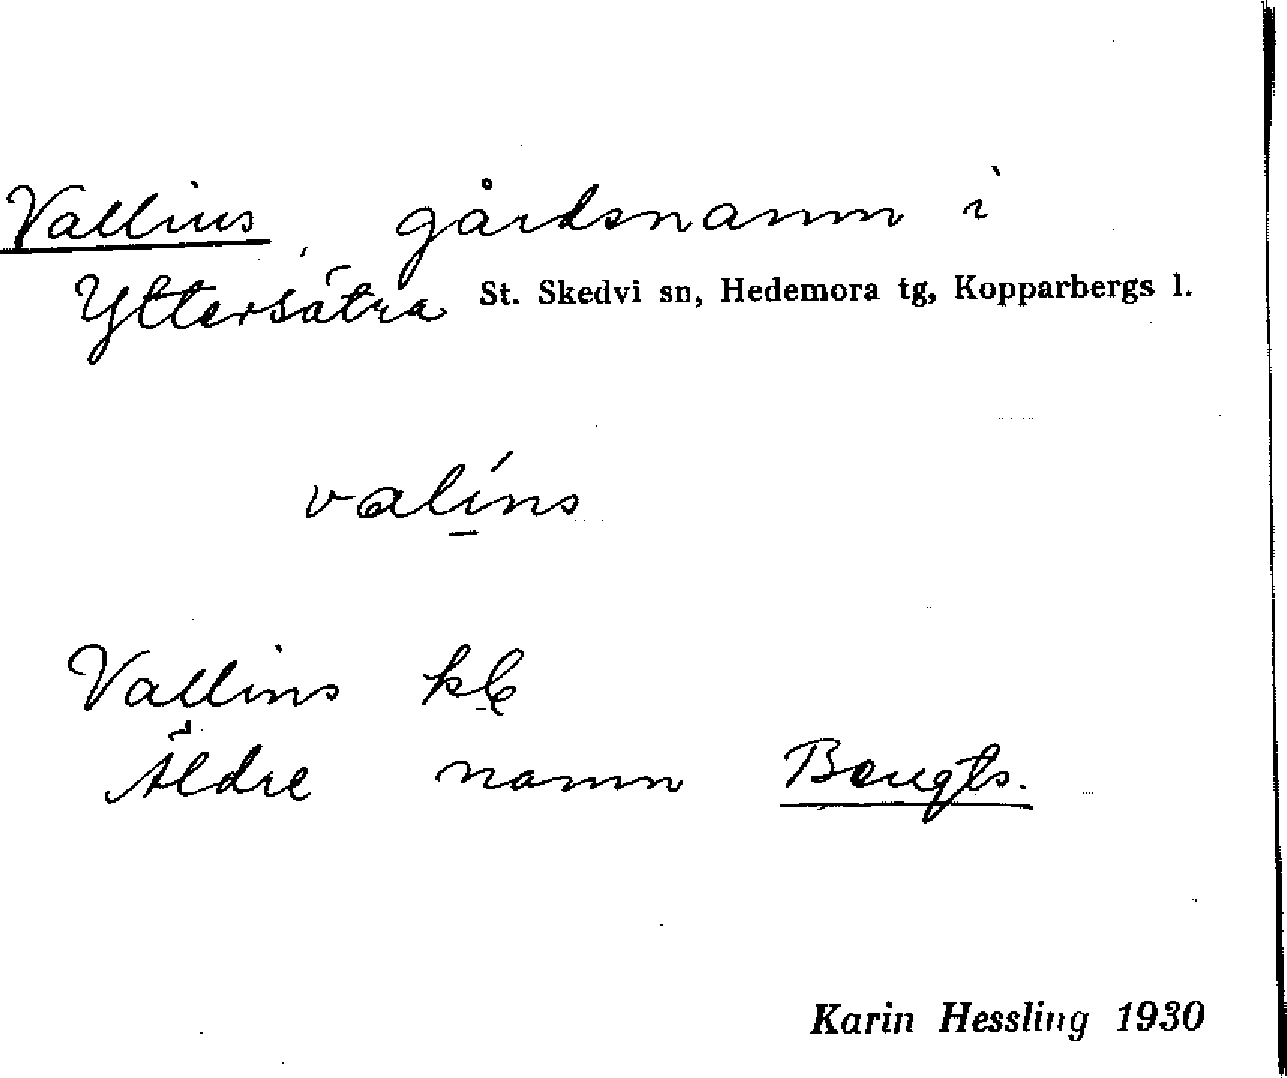 Vallins, gårdsnamn i
Yttersätra St. Skedvi sn, Hedemora tg, Kopparbergs l.
valíns
Vallins kb
Äldre namn Bengts.
Karin Hessling 1930